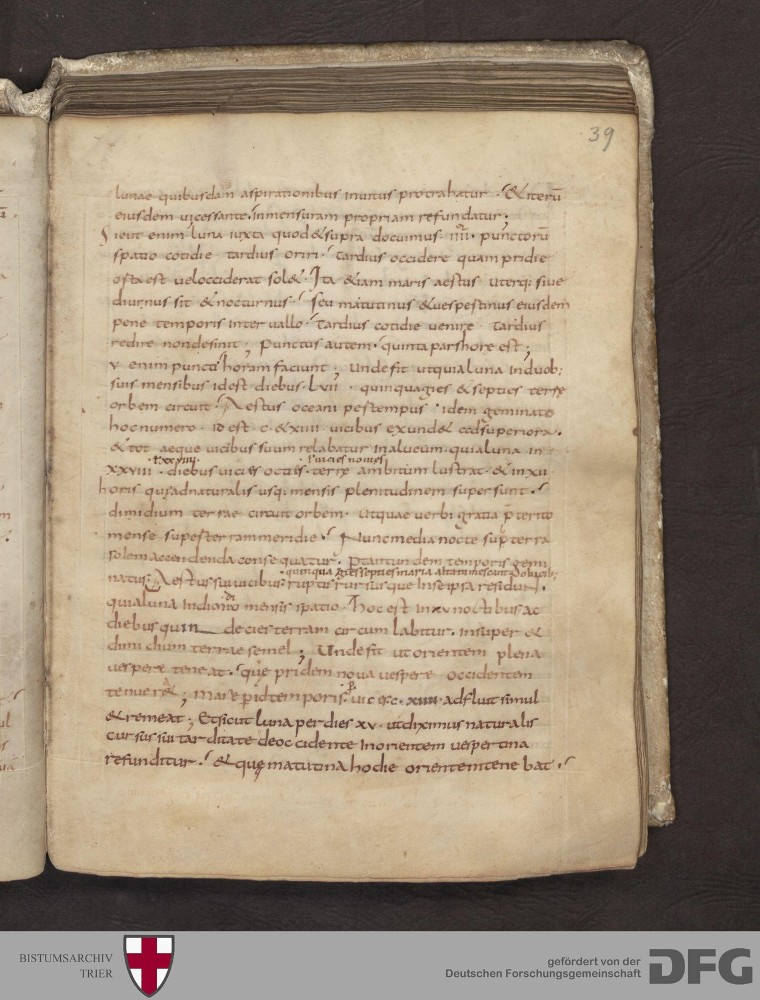 39
lunae quibusdam aspirationibus inuitus protrahatur. & iterū
eiusdem uicessante. inmensuram propriam refundatur;
Sicut enim luna iuxta quod & supra docuimus. IIII. punctorū
spatio cotidie tardius oriri. tardius occidere quam pridie
orta est uel occiderat sol&. Ita & iam maris aestus uterq: siue
diurnus sit & nocturnus. seu matutinus & uespertinus eiusdem
pene temporis interuallo. tardius cotidie uenire tardius
redire nondesinit; Punctus autem. quinta pars hore est;
v enim puncti horam faciunt; Unde fit ut quia luna in duob:
suis mensibus id est diebus. lvii. quinquagies & septies terrę
orbem circuit. Aestus oceani per tempus idem geminato
hoc numero. id est. c. & xiiii. uicibus exund& ad superiora.
& tot aeque uicibus suum relabatur inalueum. quia luna in
.xxviiii. uicies nouies
xxviii. diebus uicies octies. terrę ambitum lustrat. & in xii
horis quę ad naturalis usq: mensis plenitudinem supersunt.
dimidium terrae circuit orbem. utquae uerbi gratia p̄terito
mense super terram meridie. Nunc media nocte sup terra
solem accendenda consequatur. Ptantundem temporis gemi
quinquagies septies maria
natis. Aestus sui uicibus ruptis rursusque in se ipsa residunt.
quia luna in dimidio mensis spatio. hoc est in xv noctibus ac
diebus quin decies terram circum labitur. insuper &
dimidium terrae semel; Unde fit ut orientem plena
uespere teneat. quę pridem noua uespere occidentem
tenuer&; mare p id temporis. uicies. xxviiii. adfluit simul
& remeat; Et sicut luna per dies xv. ut diximus naturalis
cursus sui tarditate de occidente in orientem uespertina
refunditur. & quę matutina hodie orientem tenebat.
BISTUMSARCHIV
TRIER
gefördert von der
Deutschen Forschungsgemeinschaft
DFG